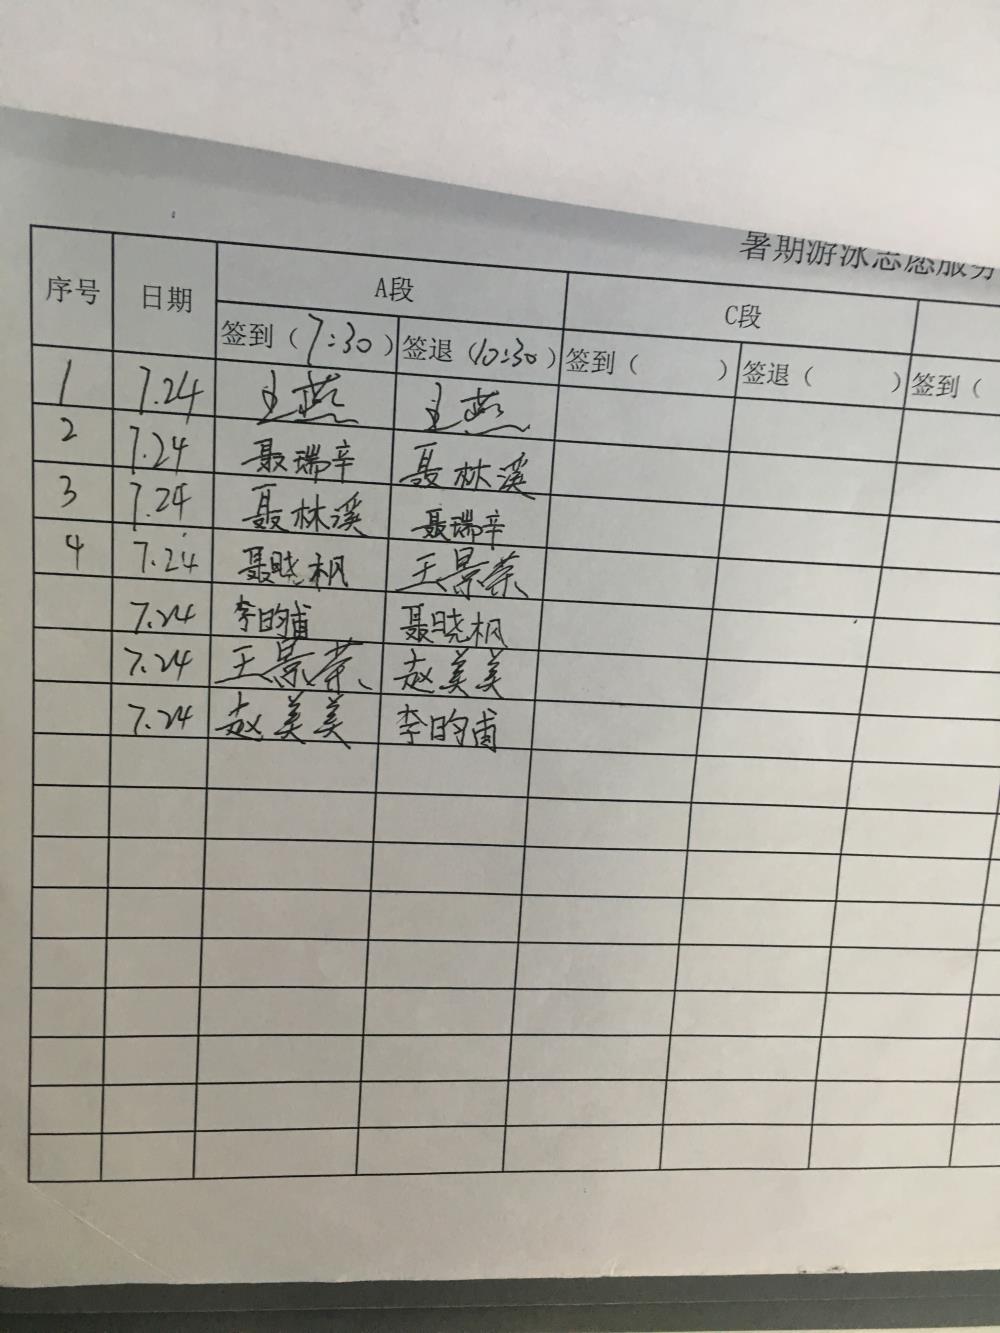 暑期游泳志愿服务
序号 日期 A段 C段
签到（7:30） 签退（10:30） 签到（ ） 签退（ ） 签到（
1 7.24 王燕 王燕
2 7.24 聂瑞辛 聂林溪
3 7.24 聂林溪 聂瑞辛
4 7.24 聂晓枫 王景荣
7.24 李昀甫 聂晓枫
7.24 王景荣 赵美美
7.24 赵美美 李昀甫